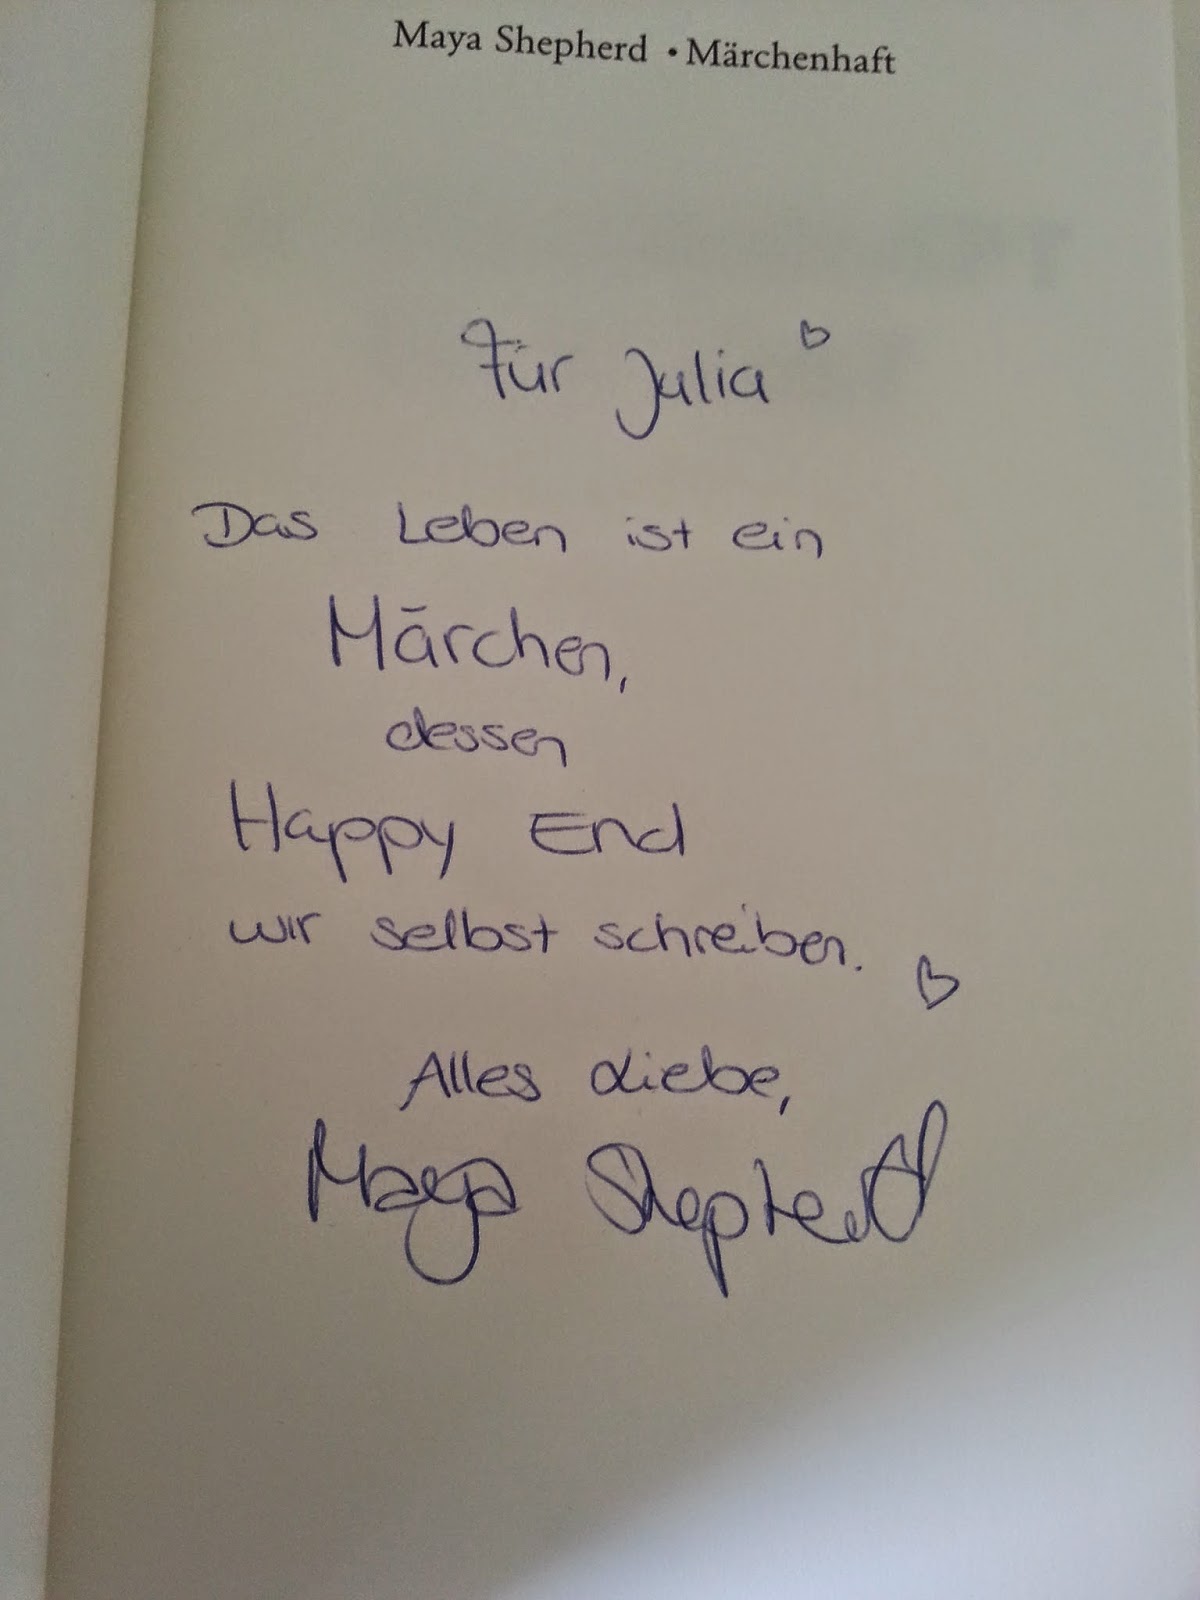 Maya Shepherd • Märchenhaft
Für Julia ♡
Das Leben ist ein
Märchen,
dessen
Happy End
wir selbst schreiben. ♡
Alles Liebe,
Maya Shepherd